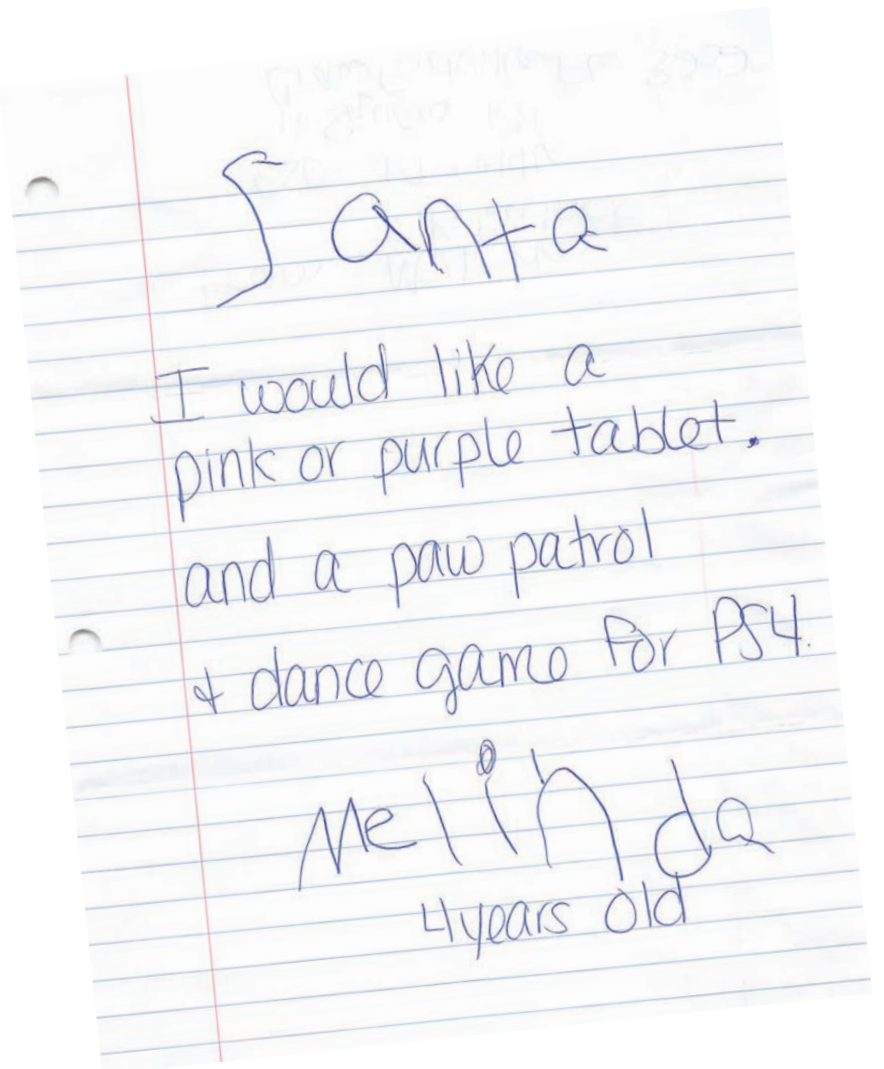 Santa
I would like a
pink or purple tablet.
and a paw patrol
& dance game for PS4.
Melinda
4 years old